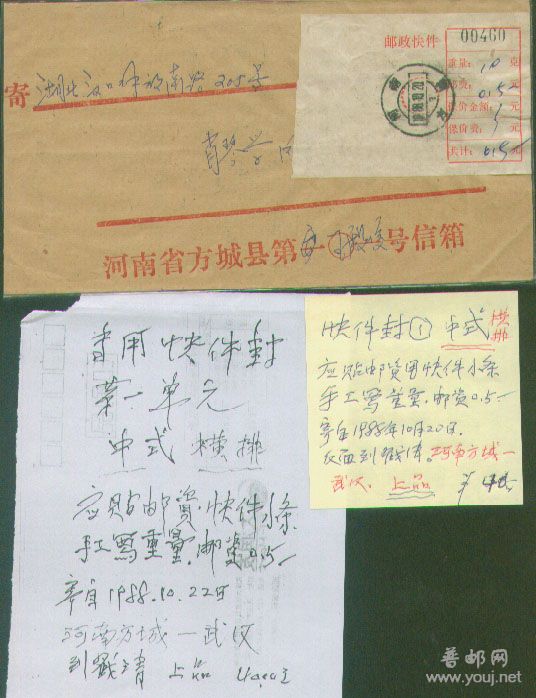 邮政快件
00460
重量: 10 克
邮费: 0.15 元
保价金额: 元
保价费: 元
共计: 0.15 元
寄
湖北汉口解放南路205号
肖
河南省方城县第 号信箱
普用快件封
第一单元
中式 横排
应贴邮资.快件条
手工写重量.邮资0.5
寄自1988.10.22日
河南方城—武汉
到戳清 上品
快件封① 中式
横排
应贴邮资用快件小条
手工写重量.邮资0.5
寄自1988年10月20日.
反面到戳清.河南方城—
武汉. 上品
普邮网
www.youj.net